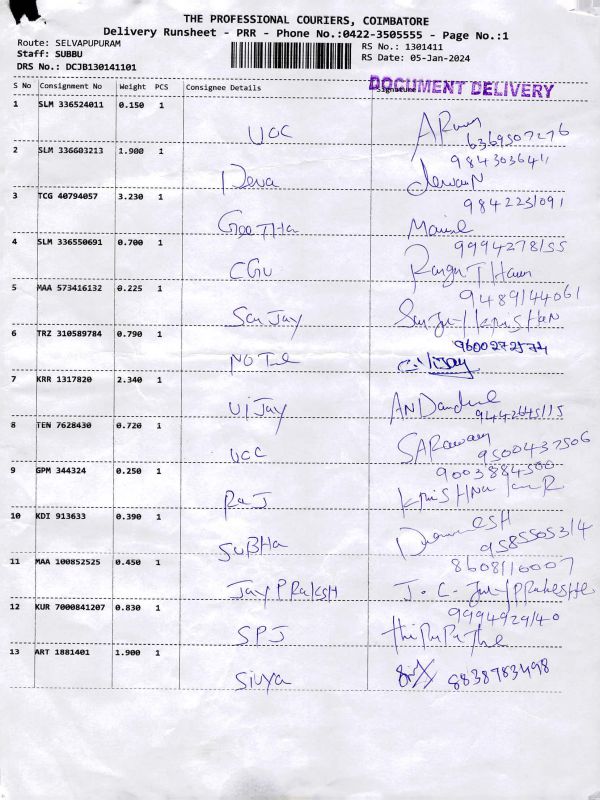 THE PROFESSIONAL COURIERS, COIMBATORE
Delivery Runsheet - PRR - Phone No.:0422-3505555 - Page No.:1
Route: SELVAPUPURAM
Staff: SUBBU
DRS No.: DCJB130141101
RS No.: 1301411
RS Date: 05-Jan-2024
DOCUMENT DELIVERY
S No Consignment No Weight PCS Consignee Details Signature
1 SLM 336524011 0.150 1
UCC
6369507276
2 SLM 336603213 1.900 1
984303641
Deva
3 TCG 40794057 3.230 1
9842251091
Geetha
4 SLM 336550691 0.700 1
9994278155
CGU
5 MAA 573416132 0.225 1
9489144061
Sanjay
6 TRZ 310589784 0.790 1
9600272574
7 KRR 1317820 2.340 1
Vijay
9442645115
8 TEN 7628430 0.720 1
UCC
9500437506
9 GPM 344324 0.250 1
9003884500
Raj
10 KDI 913633 0.390 1
SuBHa
9585505314
11 MAA 100852525 0.450 1
8608116007
Jay PRaKSH
12 KUR 7000841207 0.830 1
9994929140
SPJ
13 ART 1881401 1.900 1
Sivya
8838783498